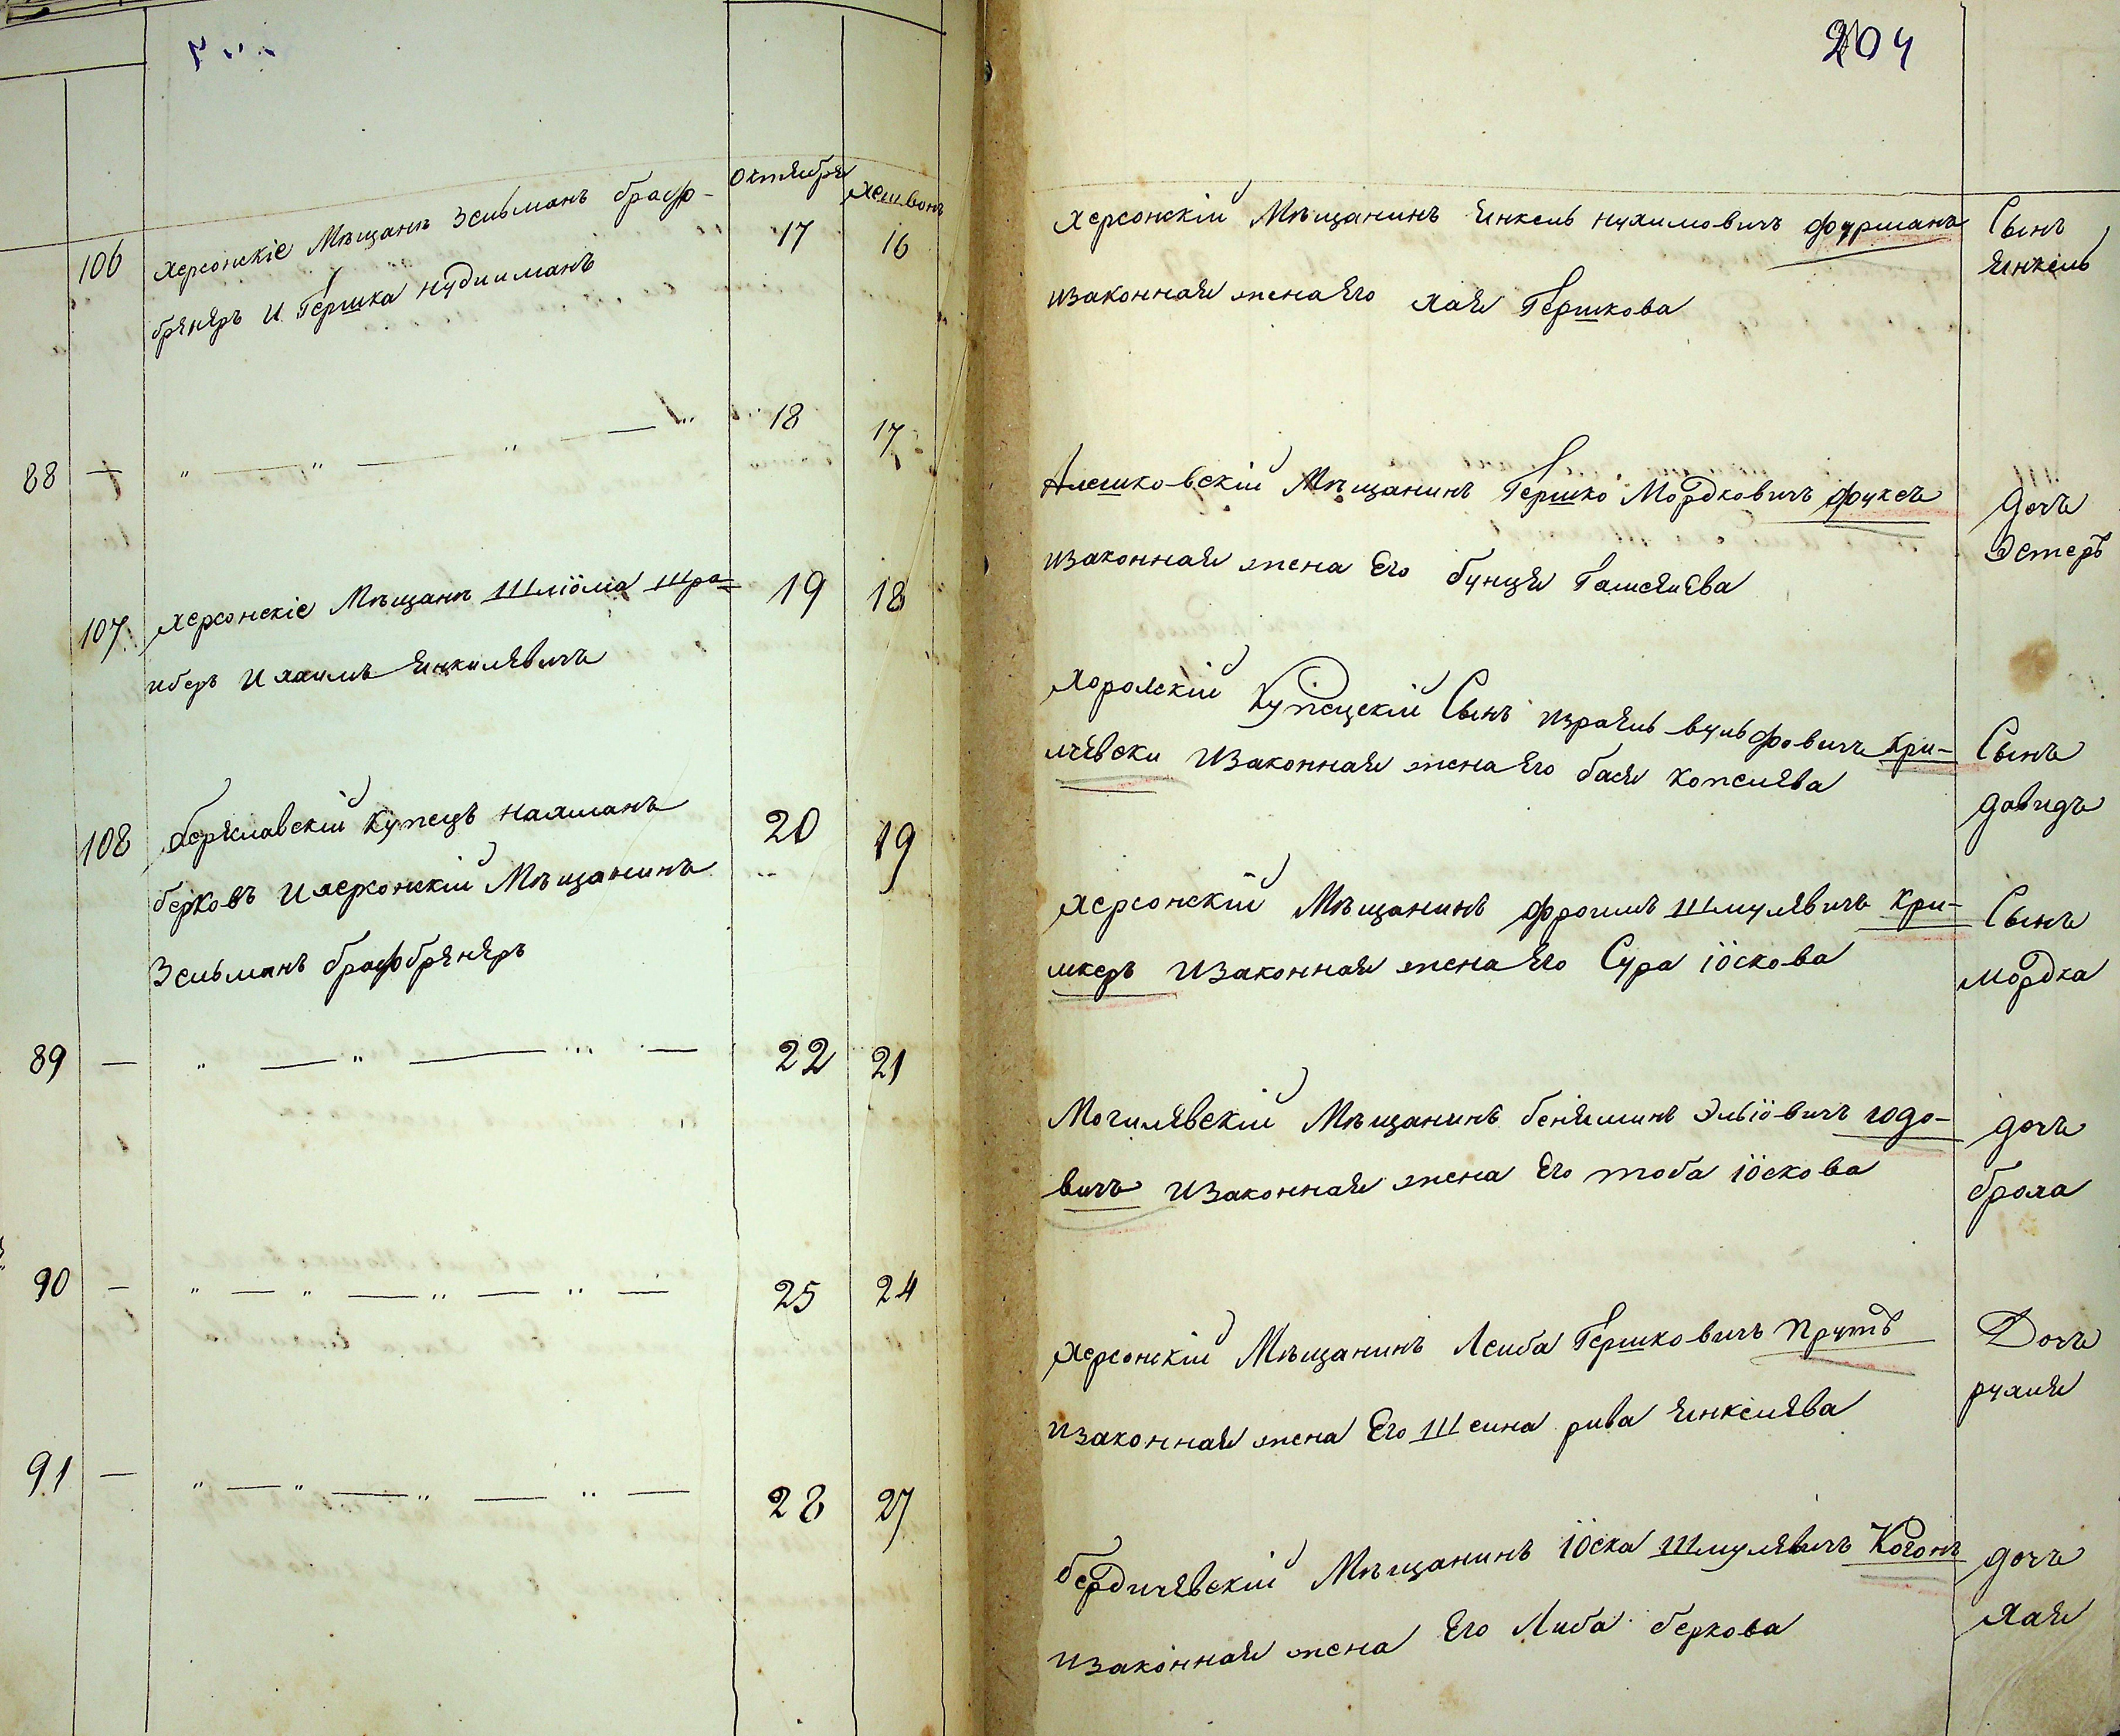 204
Октября Хешвонъ
106 Херсонскіе Мѣщанѣ Зельманъ браф-
брѣнѣръ И Гершка нудиманъ
17 16
Херсонскій Мѣщанинъ Янкель нухимовичъ фурманъ
Изаконная жена Его хая Гершкова
Сынъ
Янкель
88 — " — " — " — "
18 17
Алешковскій Мѣщанинъ Гершко Мордковичъ фуксъ
Изаконная жена Его бунця
дочь
Эстеръ
107 Херсонскіе Мѣщанѣ Шліома Шра-
иберъ И хаимъ Янкилѣвичъ
19 18
Хоролскій Купецскій Сынъ израиль вульфовичъ кри-
лчѣвски Изаконная жена Его бася копелѣва
Сынъ
давидъ
108 бериславскій купецъ нахманъ
берковъ И херсонскій Мѣщанинъ
Зельманъ брафбрѣнѣръ
20 19
Херсонскій Мѣщанинъ фроимъ Шмулѣвичъ кри-
мкеръ Изаконная жена Его Сура іоскова
Сынъ
мордка
89 — " — " — " —
22 21
Могилѣвскій Мѣщанинъ беніяминъ Эльіовичъ годо-
вичъ Изаконная жена Его тоба іоскова
дочь
броха
90 — " — " — " — " —
25 24
Херсонскій Мѣщанинъ Леиба Гершковичъ прутъ
Изаконная жена Его Шеина рива Янкелѣва
Дочь
рухля
91 — " — " — " — " —
28 27
бердичѣвскій Мѣщанинъ іоска Шмулѣвичъ Когонъ
Изаконная жена Его Либа беркова
дочь
хая